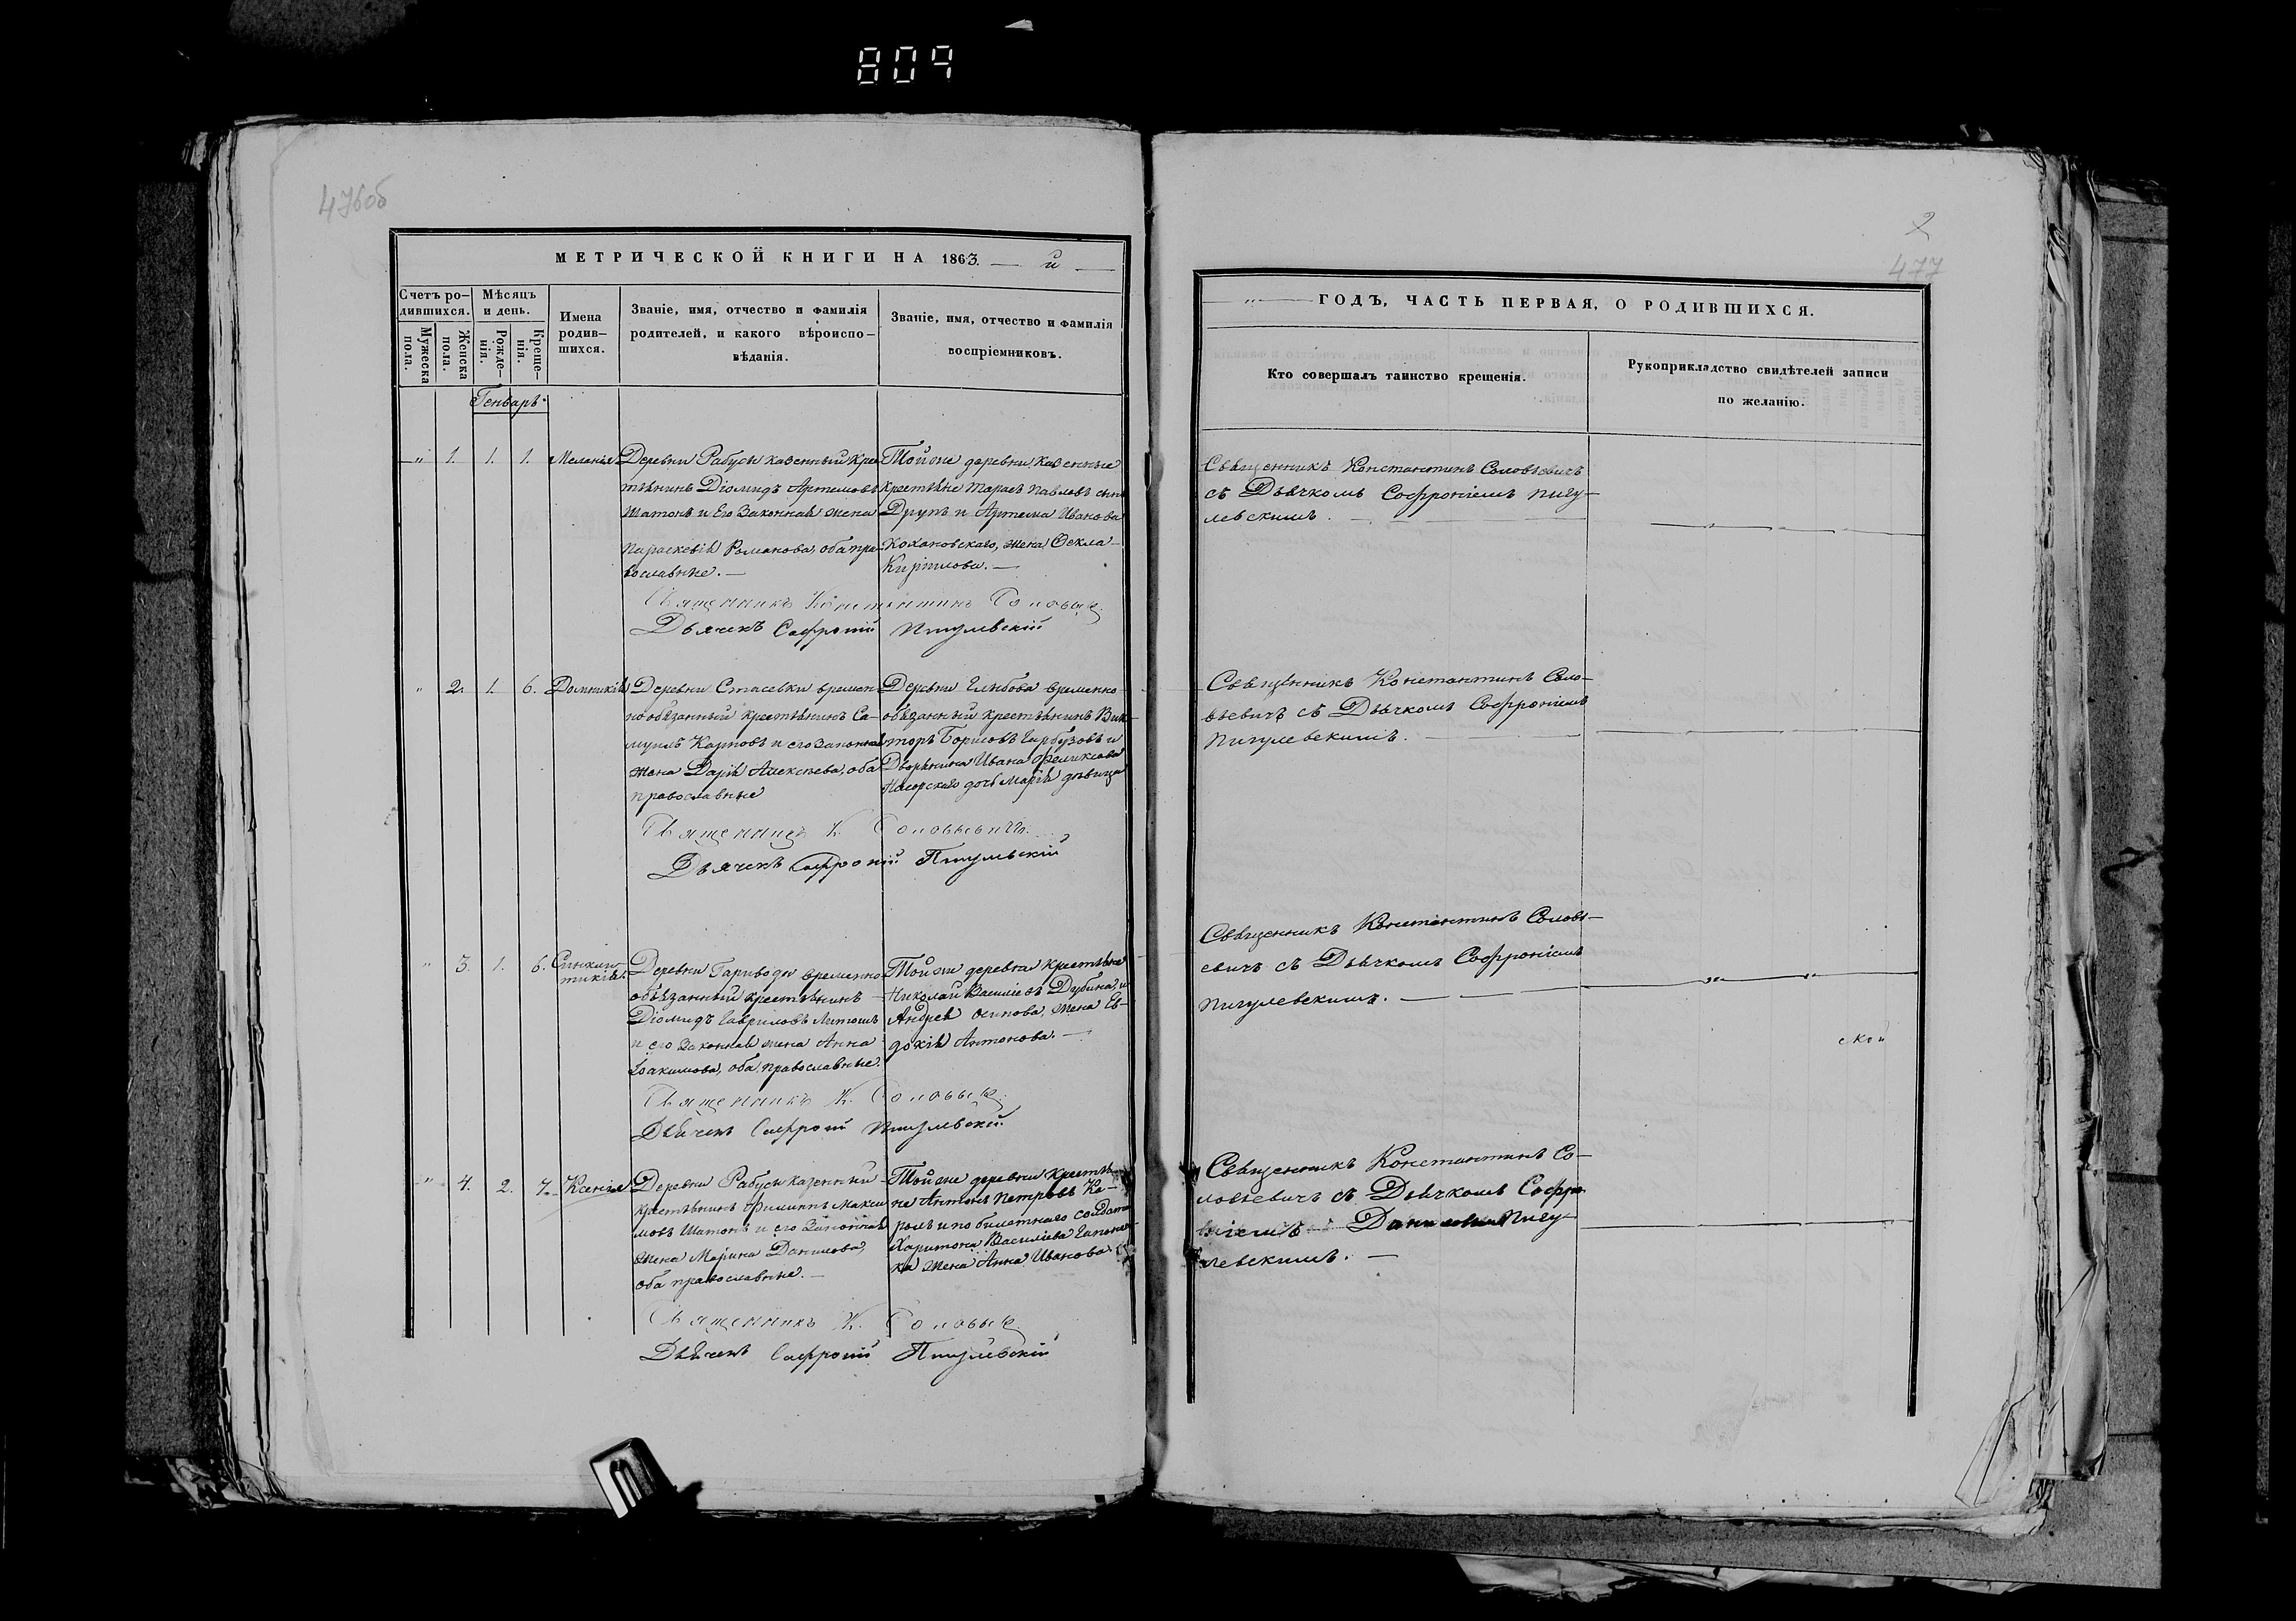 809
476об
МЕТРИЧЕСКОЙ КНИГИ НА 1863. — й —
Счетъ ро-
дившихся.
Мужеска
пола.
Женска
пола.
Мѣсяцъ
и день.
Рожде-
нія.
Креще-
нія.
Имена
родив-
шихся.
Званіе, имя, отчество и фамилія
родителей, и какого вѣроиспо-
вѣданія.
Званіе, имя, отчество и фамилія
воспріемниковъ.
Генварь.
„ 1. 1. 1. Меланія
Деревни Рабусы казенный кре-
стьянинъ Діомидъ Артемовъ
Шатонъ и Его Законная жена
Параскевія Романова, оба пра-
вославные. —
Той же деревни, Казенные
Крестьяне Тарасъ Павловъ сынъ
и Артема Иванова
Кохановскаго, жена Ѳекла
Кирилова. —
Священникъ Константинъ Соловье
Дьячекъ Софроній Пигулевскій
„ 2. 1. 6. Домникія
Деревни Стасевки времен-
но обязанный крестьянинъ Са-
муилъ Карповъ и его Законная
жена Дарія Алексѣева, оба
православные
Деревни Глыбова временно-
обязанный крестьянинъ Вик-
торъ Борисовъ Гарбузовъ и
Дворянина Ивана Феликсова
дочь Марія дѣвица
Священникъ К. Соловьевичъ
Дьячекъ Софроній Пигулевскій
„ 3. 1. 6. Синкли-
тикія
Деревни Гариводы временно-
обязанный крестьянинъ
Діомидъ Гавриловъ Литошъ
и его Законная жена Анна
Іоакимова, оба православные.
Той же деревни крестьяне
Николай Василіевъ Дубина, и
Андрея Осипова, жена Ев-
докія Антонова. —
Священникъ К. Соловье
Дьячекъ Софроній Пигулевскій
„ 4. 2. 7. Ксенія
Деревни Рабусы казенный
крестьянинъ Филиппъ Макси-
мовъ Шатонъ и его Законная
жена Марина Данилова,
оба православные. —
Той же деревни крестья-
не Антонъ Петровъ Ко-
роль и по билетнаго солдата
Харитона Василіева Гапонен-
ка жена Анна Иванова
Священникъ К. Соловье
Дьячекъ Софроній Пигулевскій
2
477
„ — ГОДЪ, ЧАСТЬ ПЕРВАЯ, О РОДИВШИХСЯ.
Кто совершалъ таинство крещенія.
Рукоприкладство свидѣтелей записи
по желанію.
Священникъ Константинъ Соловьевичъ
съ Дьячкомъ Софроніемъ Пигу-
левскимъ. —
Священникъ Константинъ Соло-
вьевичъ съ Дьячкомъ Софроніемъ
Пигулевскимъ. —
Священникъ Константинъ Соловь-
евичъ съ Дьячкомъ Софроніемъ
Пигулевскимъ. —
ской
Священникъ Константинъ Со-
ловьевичъ съ Дьячкомъ Софро-
ніемъ Пигу-
левскимъ. —